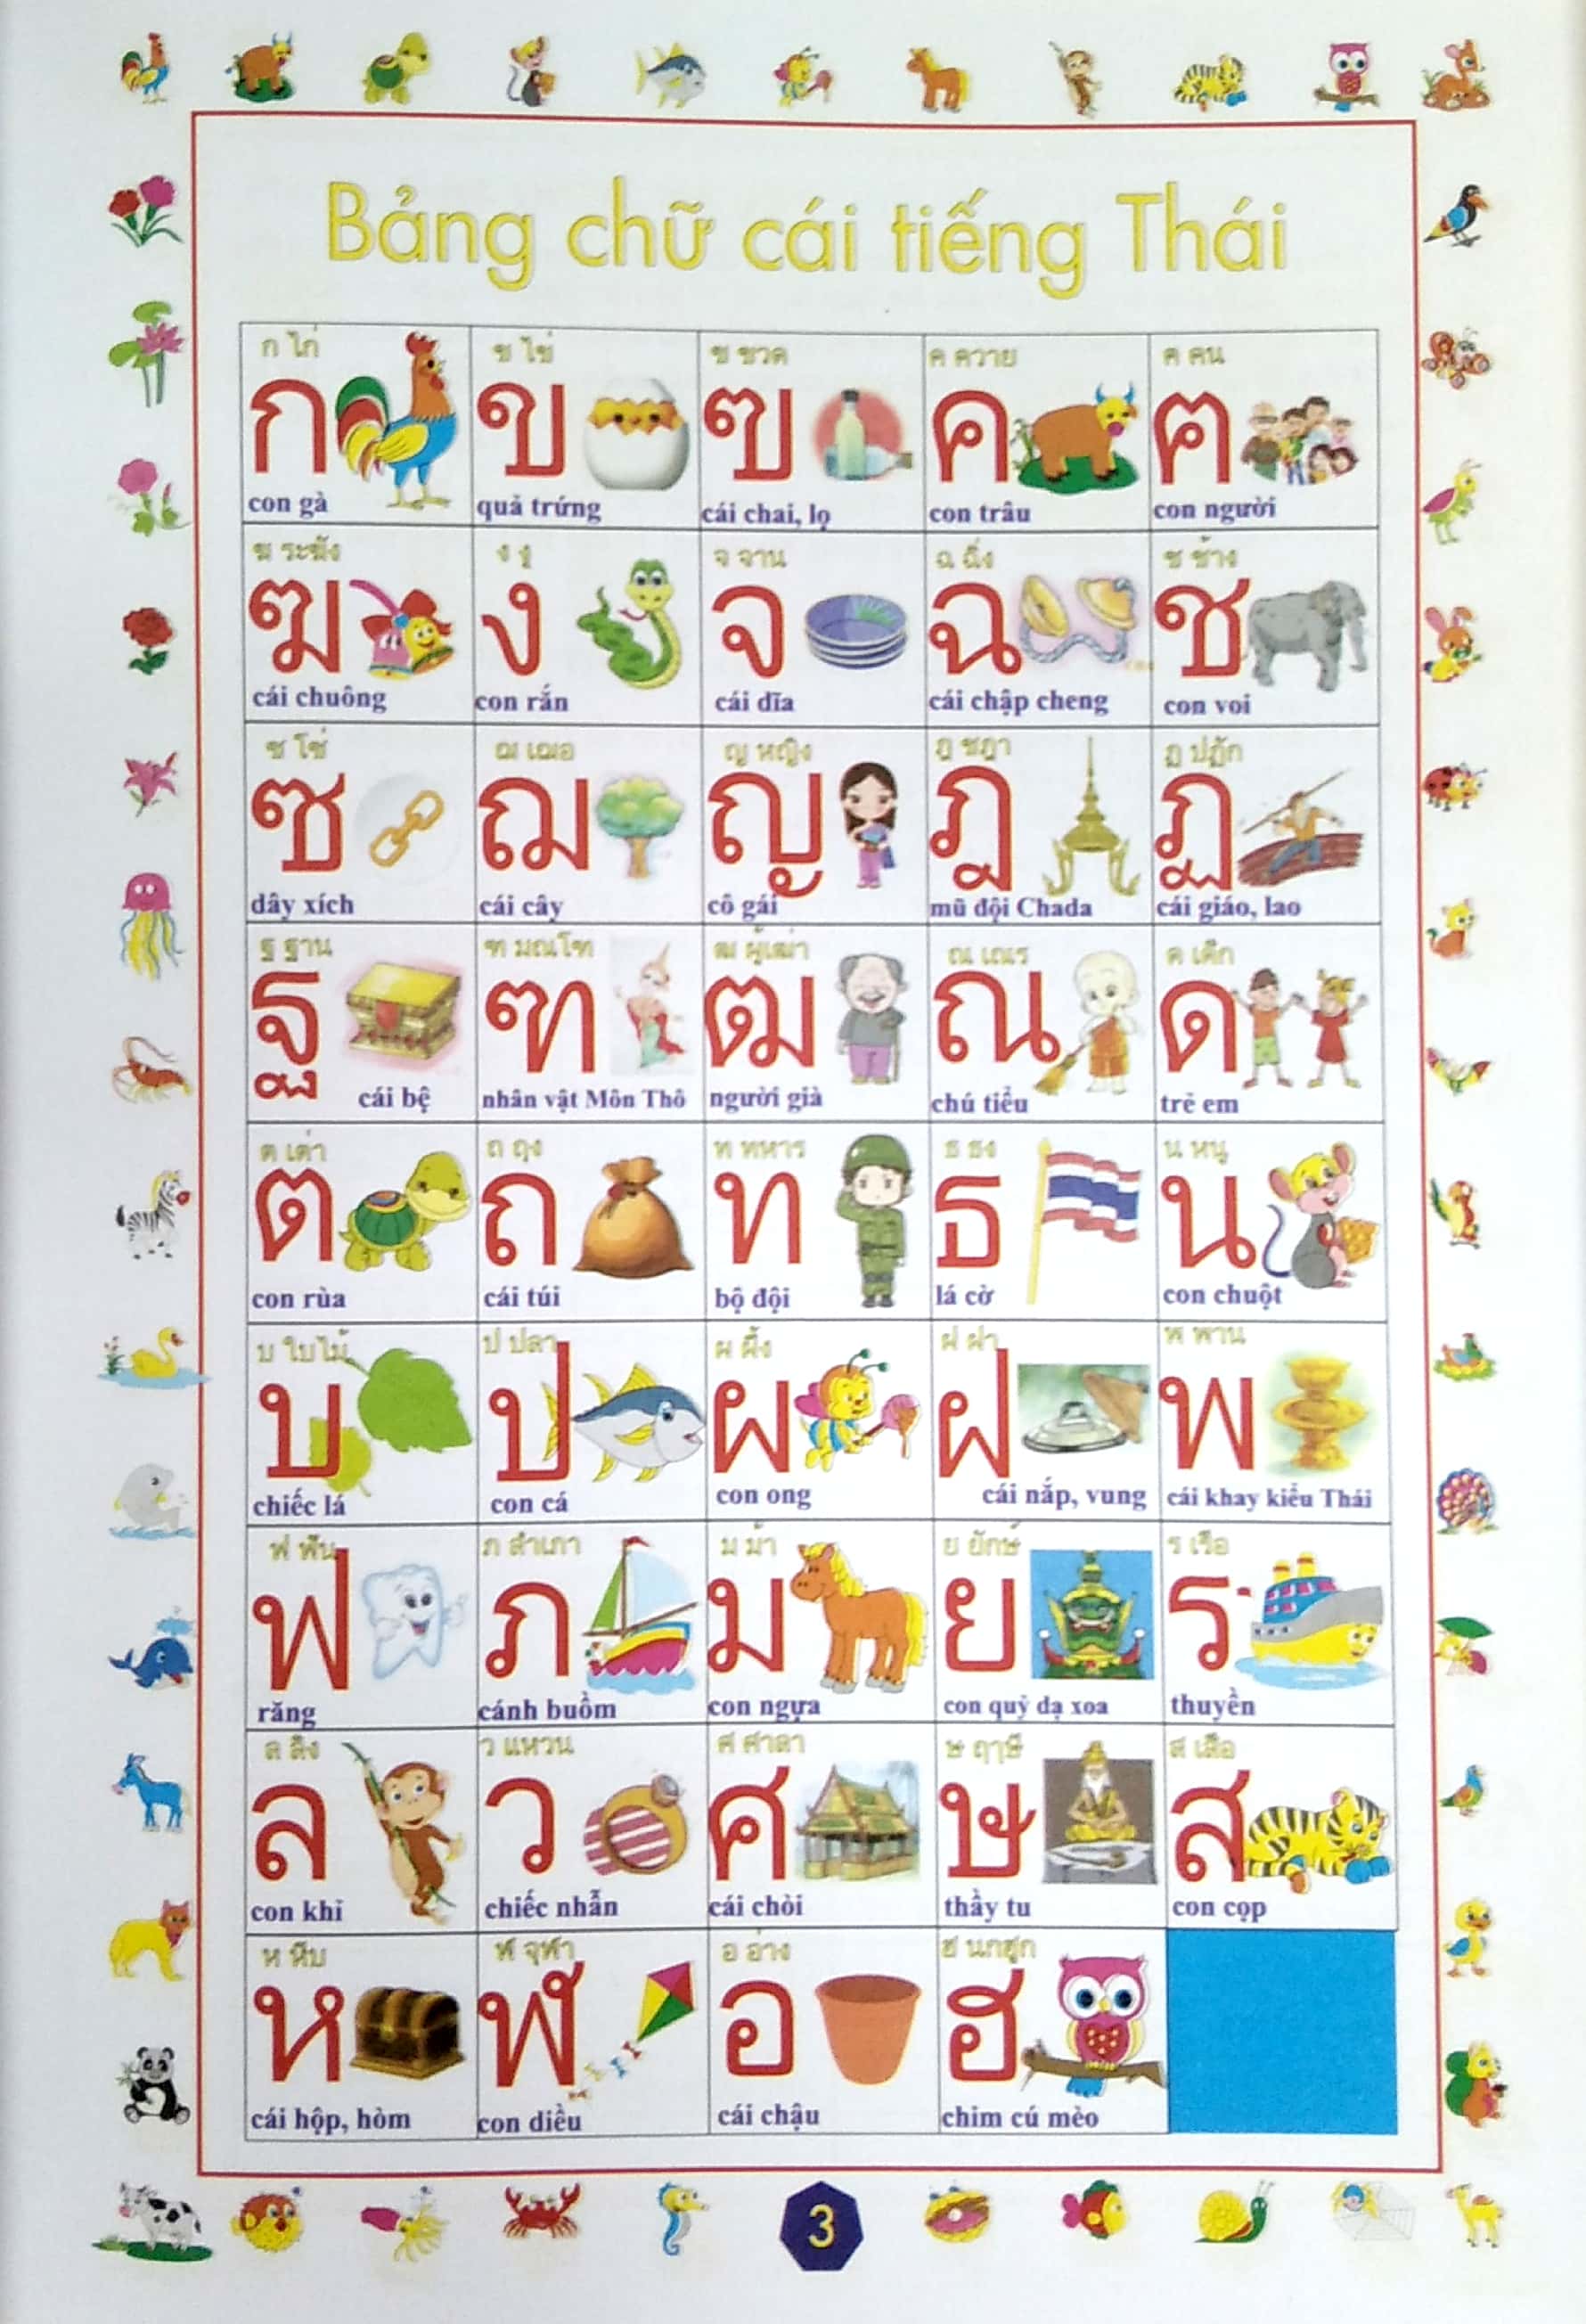 Bảng chữ cái tiếng Thái
ก ไก่ ข ไข่ ฃ ขวด ค ควาย ฅ คน
ก ข ฃ ค ฅ
con gà quả trứng cái chai, lọ con trâu con người
ฆ ระฆัง ง งู จ จาน ฉ ฉิ่ง ช ช้าง
ฆ ง จ ฉ ช
cái chuông con rắn cái dĩa cái chập cheng con voi
ซ โซ่ ฌ เฌอ ญ หญิง ฎ ชฎา ฏ ปฏัก
ซ ฌ ญ ฎ ฏ
dây xích cái cây cô gái mũ đội Chada cái giáo, lao
ฐ ฐาน ฑ มณโฑ ฒ ผู้เฒ่า ณ เณร ด เด็ก
ฐ ฑ ฒ ณ ด
cái bệ nhân vật Môn Thô người già chú tiểu trẻ em
ต เต่า ถ ถุง ท ทหาร ธ ธง น หนู
ต ถ ท ธ น
con rùa cái túi bộ đội lá cờ con chuột
บ ใบไม้ ป ปลา ผ ผึ้ง ฝ ฝา พ พาน
บ ป ผ ฝ พ
chiếc lá con cá con ong cái nắp, vung cái khay kiểu Thái
ฟ ฟัน ภ สำเภา ม ม้า ย ยักษ์ ร เรือ
ฟ ภ ม ย ร
răng cánh buồm con ngựa con quỷ dạ xoa thuyền
ล ลิง ว แหวน ศ ศาลา ษ ฤๅษี ส เสือ
ล ว ศ ษ ส
con khỉ chiếc nhẫn cái chòi thầy tu con cọp
ห หีบ ฬ จุฬา อ อ่าง ฮ นกฮูก
ห ฬ อ ฮ
cái hộp, hòm con diều cái chậu chim cú mèo
3